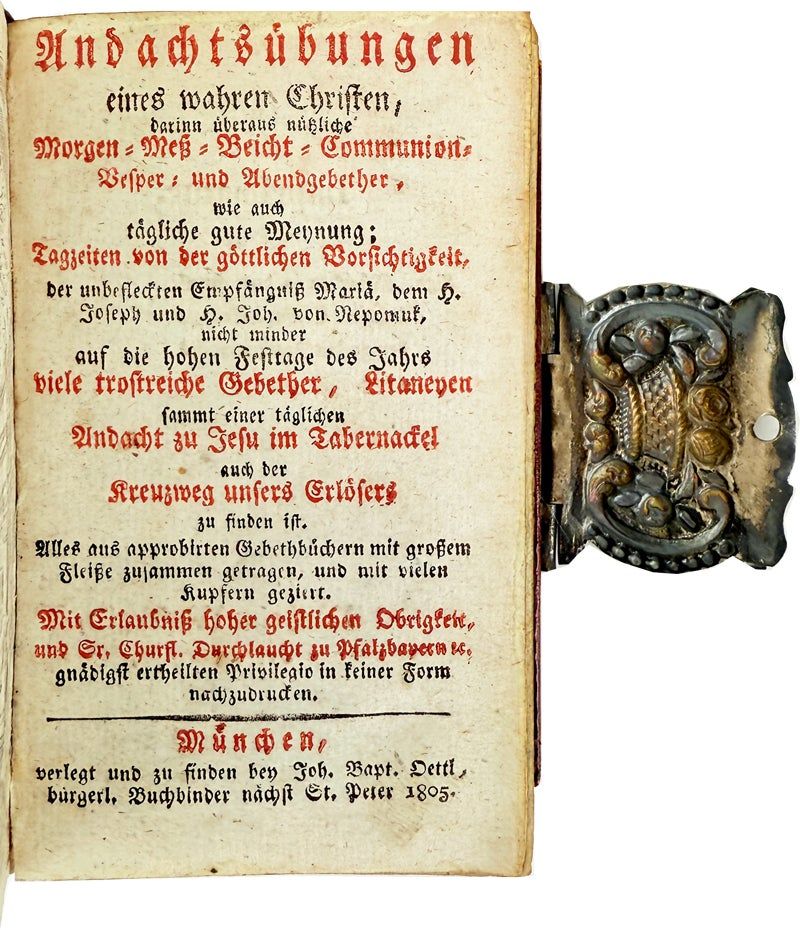 Andachtsübungen
eines wahren Christen,
darinn überaus nützliche
Morgen-Meß-Beicht-Communion-
Vesper- und Abendgebether,
wie auch
tägliche gute Meynung;
Tagzeiten von der göttlichen Vorsichtigkeit,
der unbefleckten Empfängniß Mariä, dem H.
Joseph und H. Joh. von Nepomuk,
nicht minder
auf die hohen Festtage des Jahrs
viele trostreiche Gebether, Litaneyen
sammt einer täglichen
Andacht zu Jesu im Tabernackel
auch der
Kreuzweg unsers Erlösers
zu finden ist.
Alles aus approbirten Gebethbüchern mit großem
Fleiße zusammen getragen, und mit vielen
Kupfern geziert.
Mit Erlaubniß hoher geistlichen Obrigkeit,
und Sr. Churfl. Durchlaucht zu Pfalzbayern ꝛc.
gnädigst ertheilten Privilegio in keiner Form
nachzudrucken.
München,
verlegt und zu finden bey Joh. Bapt. Oettl,
bürgerl. Buchbinder nächst St. Peter 1805.